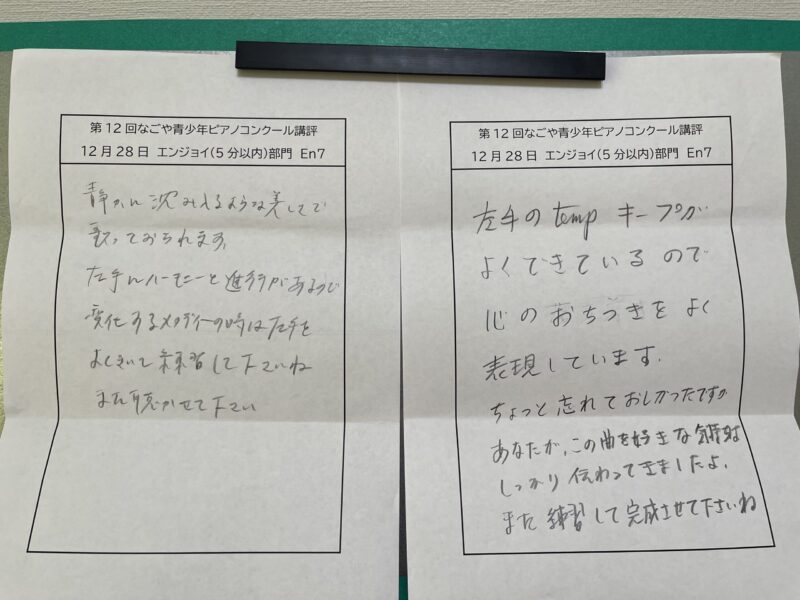 第12回なごや青少年ピアノコンクール講評
12月28日 エンジョイ(5分以内)部門 En7
静かに沈みえるような美しさで
歌っておられます。
左手にハーモニーと進行があるので
変化するメロディーの時は左手を
よくきいて練習して下さいね
また聴かせて下さい
第12回なごや青少年ピアノコンクール講評
12月28日 エンジョイ(5分以内)部門 En7
左手の temp キープが
よくできているので
心のおちつきをよく
表現しています.
ちょっと忘れておしかったですが
あなたが、この曲を好きな気持は
しっかり伝わってきましたよ.
また練習して完成させて下さいね